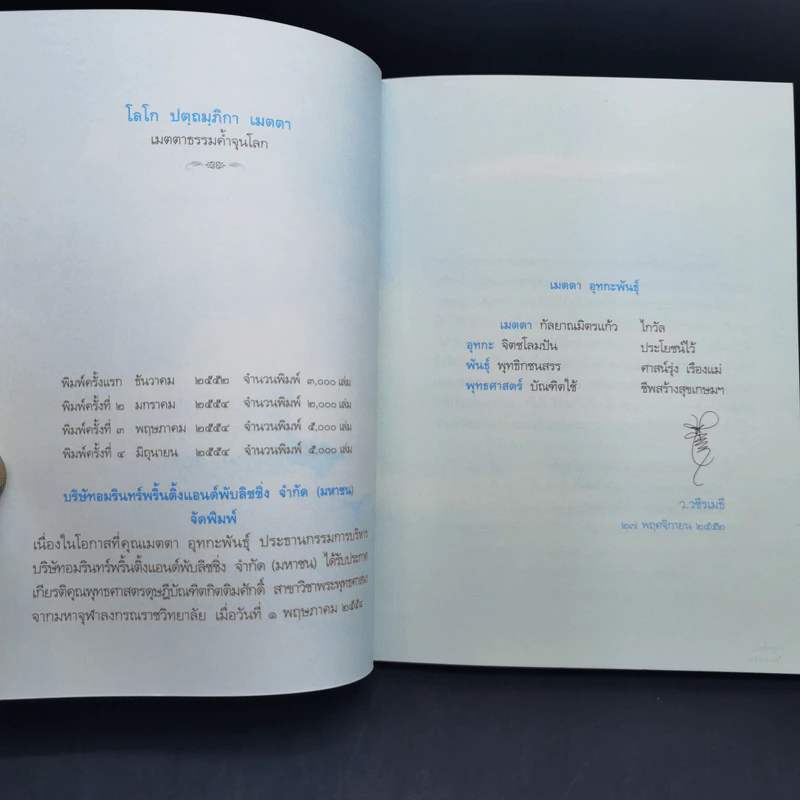 โลโก ปตฺถมฺภิกา เมตตา
เมตตาธรรมค้ำจุนโลก
พิมพ์ครั้งแรก ธันวาคม ๒๕๕๒ จำนวนพิมพ์ ๓,๐๐๐ เล่ม
พิมพ์ครั้งที่ ๒ มกราคม ๒๕๕๔ จำนวนพิมพ์ ๒,๐๐๐ เล่ม
พิมพ์ครั้งที่ ๓ พฤษภาคม ๒๕๕๔ จำนวนพิมพ์ ๕,๐๐๐ เล่ม
พิมพ์ครั้งที่ ๔ มิถุนายน ๒๕๕๔ จำนวนพิมพ์ ๕,๐๐๐ เล่ม
บริษัทอมรินทร์พริ้นติ้งแอนด์พับลิชชิ่ง จำกัด (มหาชน)
จัดพิมพ์
เนื่องในโอกาสที่คุณเมตตา อุทกะพันธุ์ ประธานกรรมการบริหาร
บริษัทอมรินทร์พริ้นติ้งแอนด์พับลิชชิ่ง จำกัด (มหาชน) ได้รับประกาศ
เกียรติคุณพุทธศาสตรดุษฎีบัณฑิตกิตติมศักดิ์ สาขาวิชาพระพุทธศาสนา
จากมหาจุฬาลงกรณราชวิทยาลัย เมื่อวันที่ ๑ พฤษภาคม ๒๕๕๔
เมตตา อุทกะพันธุ์
เมตตา กัลยาณมิตรแก้ว ไกวัล
อุทกะ จิตชโลมปัน ประโยชน์ไว้
พันธุ์ พุทธิกชนสรร ศาสน์รุ่ง เรืองแม่
พุทธศาสตร์ บัณฑิตใช้ ชีพสร้างสุขเกษมฯ
ว.วชิรเมธี
๒๗ พฤศจิกายน ๒๕๕๒